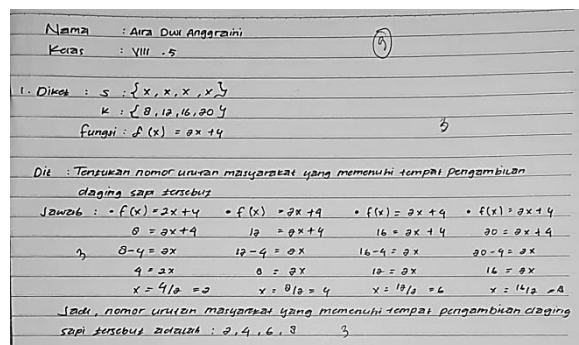 Nama : Aira Dwi Anggraini
Kelas : VIII .5
9
1. Diket : S : {x, x, x, x}
K : {8, 12, 16, 20}
fungsi : f(x) = 2x+4
3
Dit : Tentukan nomor urutan masyarakat yang memenuhi tempat pengambilan
daging sapi tersebut
Jawab : • f(x) = 2x+4 • f(x) = 2x+4 • f(x) = 2x+4 • f(x) = 2x+4
8 = 2x+4 12 = 2x+4 16 = 2x+4 20 = 2x+4
3 8-4 = 2x 12-4 = 2x 16-4 = 2x 20-4 = 2x
4 = 2x 8 = 2x 12 = 2x 16 = 2x
x = 4/2 = 2 x = 8/2 = 4 x = 12/2 = 6 x = 16/2 = 8
Jadi, nomor urutan masyarakat yang memenuhi tempat pengambilan daging
sapi tersebut adalah : 2, 4, 6, 8 3